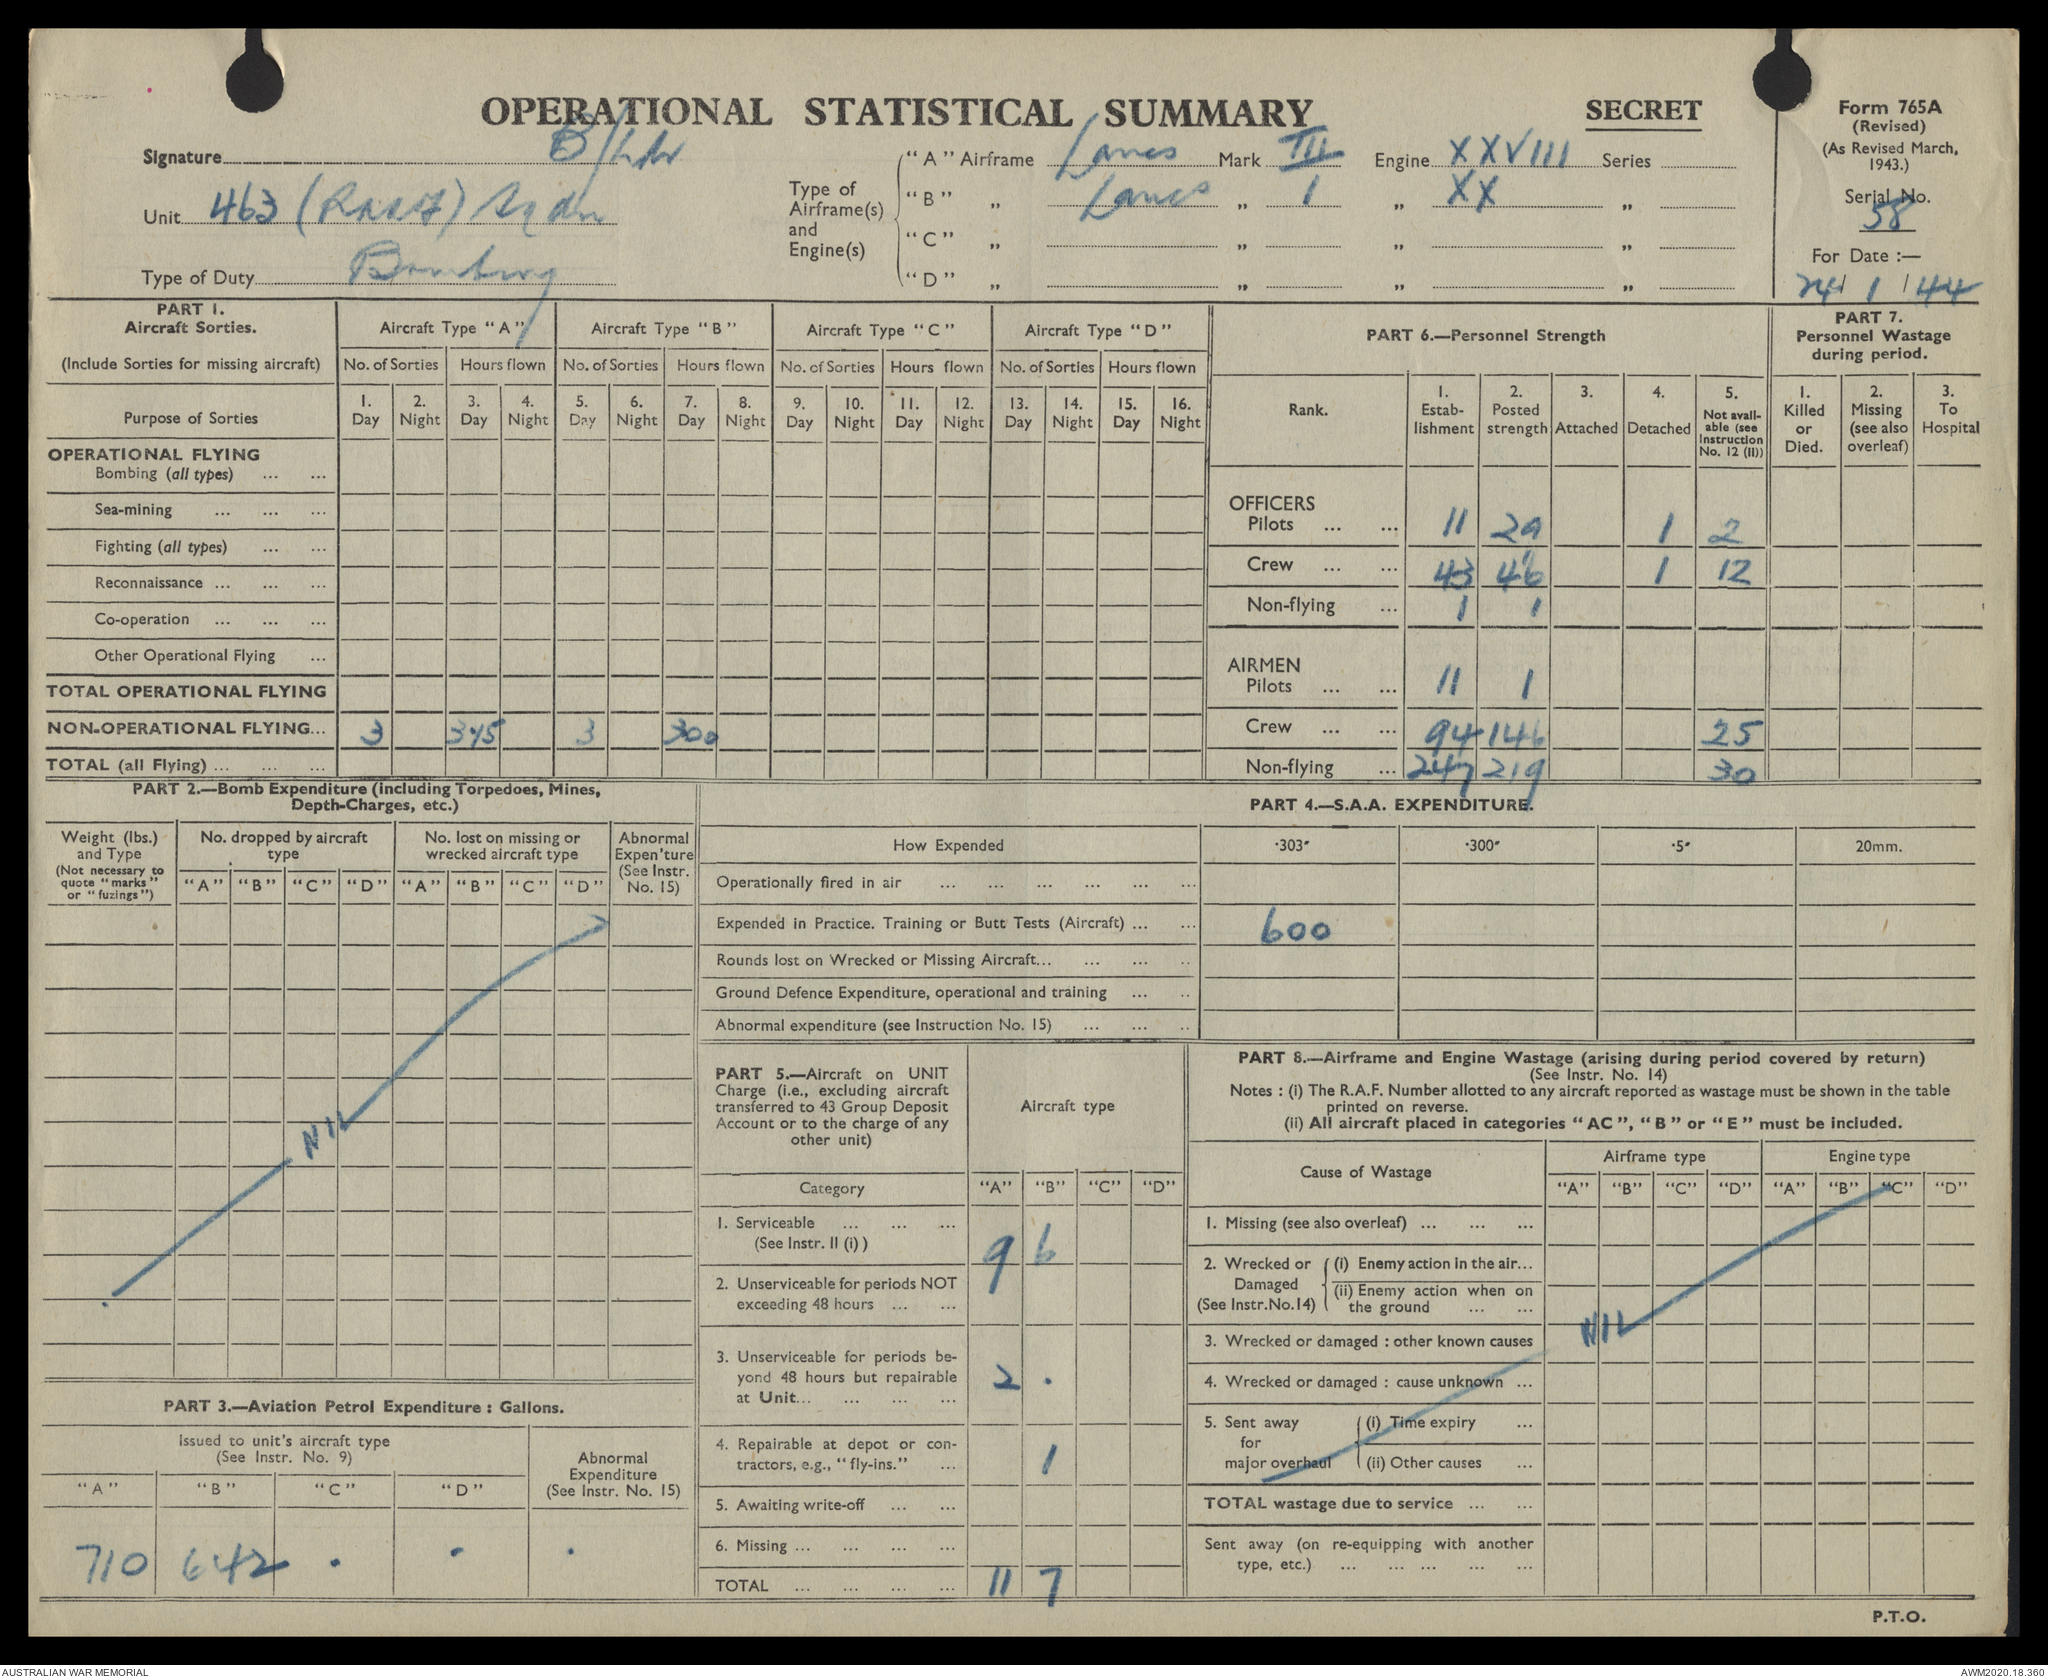 OPERATIONAL STATISTICAL SUMMARY
SECRET
Form 765A
(Revised)
(As Revised March,
1943.)
Serial No.
58
For Date :—
24/ 1 /44
Signature
Unit 463 (RAAF) Sqdn
Type of Duty Bombing
Type of
Airframe(s)
and
Engine(s)
"A" Airframe Lancs Mark III Engine XXVIII Series
"B" „ Lancs „ 1 „ XX „
"C" „ „ „ „
"D" „ „ „ „
PART 1.
Aircraft Sorties.
(Include Sorties for missing aircraft)
Purpose of Sorties
Aircraft Type "A" Aircraft Type "B" Aircraft Type "C" Aircraft Type "D"
No. of Sorties Hours flown No. of Sorties Hours flown No. of Sorties Hours flown No. of Sorties Hours flown
1. 2. 3. 4. 5. 6. 7. 8. 9. 10. 11. 12. 13. 14. 15. 16.
Day Night Day Night Day Night Day Night Day Night Day Night Day Night Day Night
OPERATIONAL FLYING
Bombing (all types) ... ...
Sea-mining ... ... ...
Fighting (all types) ... ...
Reconnaissance ... ... ...
Co-operation ... ... ...
Other Operational Flying ...
TOTAL OPERATIONAL FLYING
NON-OPERATIONAL FLYING... 3 345 3 300
TOTAL (all Flying) ... ... ...
PART 6.—Personnel Strength
Rank.
1. Estab-
lishment
2. Posted
strength
3. Attached
4. Detached
5. Not avail-
able (see
Instruction
No. 12 (II))
OFFICERS
Pilots ... ... 11 29 1 2
Crew ... ... 43 46 1 12
Non-flying ... 1 1
AIRMEN
Pilots ... ... 11 1
Crew ... ... 94 146 25
Non-flying ... 247 219 30
PART 7.
Personnel Wastage
during period.
1. Killed
or
Died.
2. Missing
(see also
overleaf)
3. To
Hospital
PART 2.—Bomb Expenditure (including Torpedoes, Mines,
Depth-Charges, etc.)
Weight (lbs.)
and Type
(Not necessary to
quote "marks"
or "fuzings")
No. dropped by aircraft
type
No. lost on missing or
wrecked aircraft type
Abnormal
Expen'ture
(See Instr.
No. 15)
"A" "B" "C" "D" "A" "B" "C" "D"
NIL
PART 3.—Aviation Petrol Expenditure : Gallons.
Issued to unit's aircraft type
(See Instr. No. 9)
Abnormal
Expenditure
(See Instr. No. 15)
"A" "B" "C" "D"
710 642 . . .
PART 4.—S.A.A. EXPENDITURE.
How Expended ·303" ·300" ·5" 20mm.
Operationally fired in air ... ... ... ... ... ...
Expended in Practice. Training or Butt Tests (Aircraft) ... ... 600
Rounds lost on Wrecked or Missing Aircraft... ... ... ..
Ground Defence Expenditure, operational and training ... ..
Abnormal expenditure (see Instruction No. 15) ... ... ..
PART 5.—Aircraft on UNIT
Charge (i.e., excluding aircraft
transferred to 43 Group Deposit
Account or to the charge of any
other unit)
Aircraft type
Category "A" "B" "C" "D"
1. Serviceable ... ... ...
(See Instr. II (i) ) 9 6
2. Unserviceable for periods NOT
exceeding 48 hours ... ...
3. Unserviceable for periods be-
yond 48 hours but repairable
at Unit... ... ... ... 2 .
4. Repairable at depot or con-
tractors, e.g., "fly-ins." ... 1
5. Awaiting write-off ... ...
6. Missing ... ... ... ...
TOTAL ... ... ... ... 11 7
PART 8.—Airframe and Engine Wastage (arising during period covered by return)
(See Instr. No. 14)
Notes : (i) The R.A.F. Number allotted to any aircraft reported as wastage must be shown in the table
printed on reverse.
(ii) All aircraft placed in categories "AC", "B" or "E" must be included.
Cause of Wastage
Airframe type Engine type
"A" "B" "C" "D" "A" "B" "C" "D"
1. Missing (see also overleaf) ... ... ...
2. Wrecked or
Damaged
(See Instr.No.14)
(i) Enemy action in the air...
(ii) Enemy action when on
the ground ... ...
NIL
3. Wrecked or damaged : other known causes
4. Wrecked or damaged : cause unknown ...
5. Sent away
for
major overhaul
(i) Time expiry ...
(ii) Other causes ...
TOTAL wastage due to service ... ...
Sent away (on re-equipping with another
type, etc.) ... ... ... ... ...
P.T.O.
AUSTRALIAN WAR MEMORIAL
AWM2020.18.360